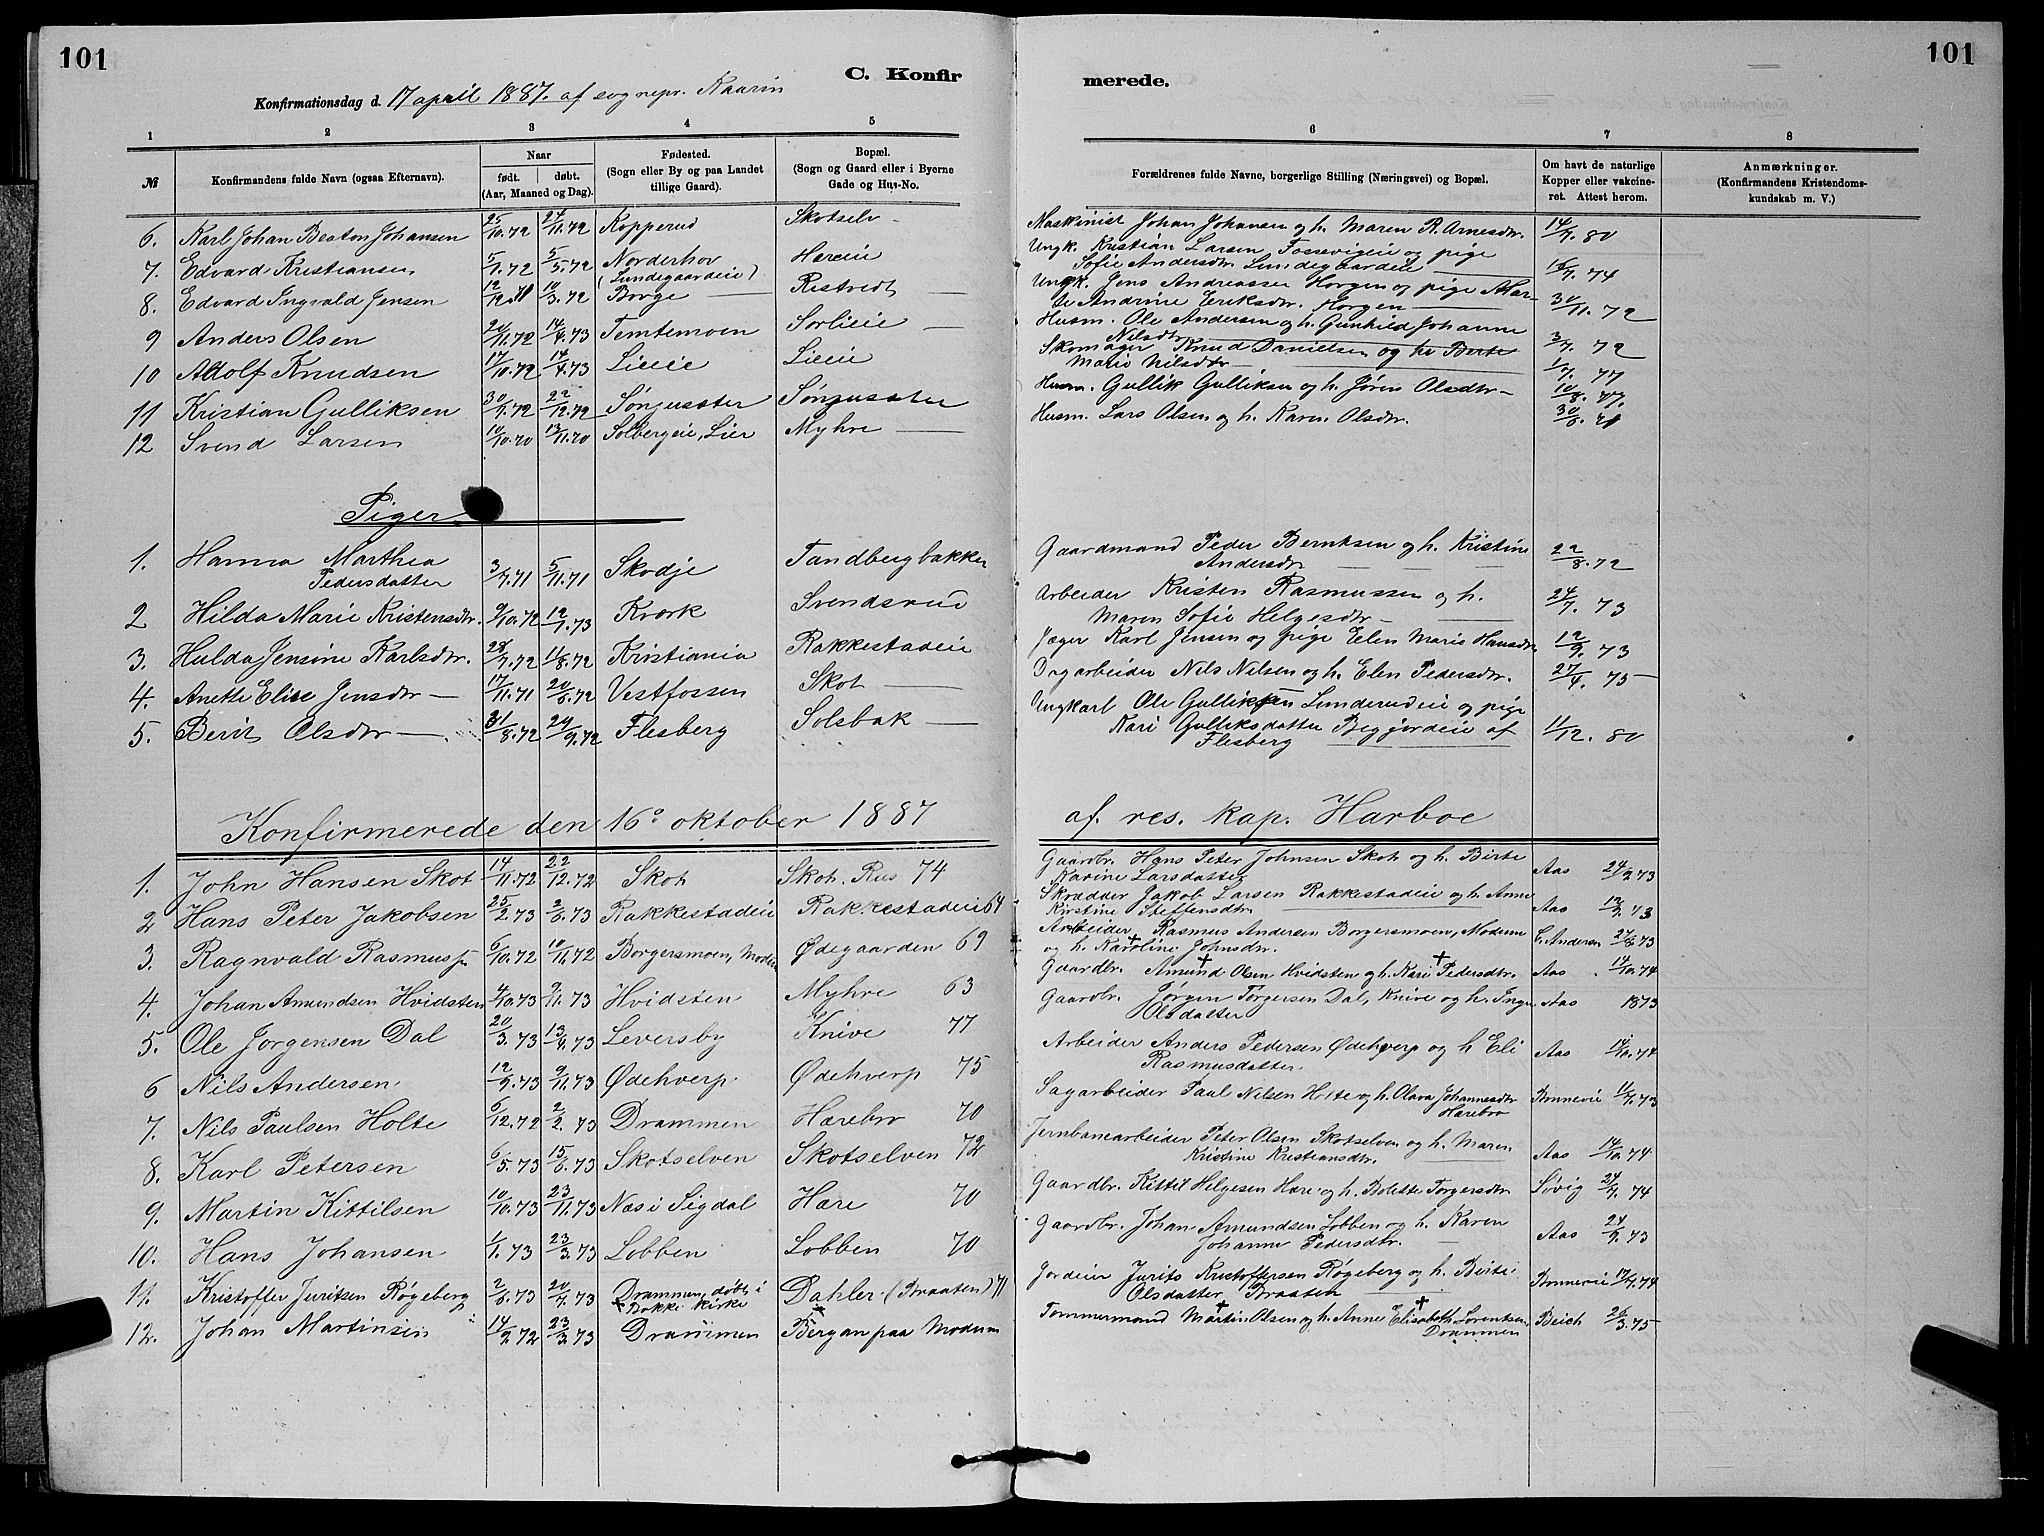 101
101
C. Konfir
merede.
Konfirmationsdag d. 17 april 1887. af sognepr. Kaarin
1 2 3 4 5 6 7 8
№
Konfirmandens fulde Navn (ogsaa Efternavn).
Naar
født. døbt.
(Aar, Maaned og Dag).
Fødested.
(Sogn eller By og paa Landet
tillige Gaard).
Bopæl.
(Sogn og Gaard eller i Byerne
Gade og Hus-No.
Forældrenes fulde Navne, borgerlige Stilling (Næringsvei) og Bopæl.
Om havt de naturlige
Kopper eller vakcine-
ret. Attest herom.
Anmærkninger.
(Konfirmandens Kristendoms-
kundskab m. V.)
6. Karl Johan Beaton Johansen 25/10.72 24/11.72 Kopperud Skotselv - Maskinist Johan Johansen og h. Maren R. Arnesdtr. 14/9. 80
7. Edvard Kristiansen 5/1.72 5/5.72 Norderhov (Lundegaardeie) Hæreie Ungk. Kristian Larsen Fossevigeie og pige
Sofie Andersdtr Lundegaardeie 16/7. 74
8. Edvard Ingvald Jensen 12/12.71 10/3.72 Borge Ristvedt Ungk. Jens Andreassen Horgen og pige Mar-
te Andrine Eriksdtr. Horgen 30/11. 72
9 Anders Olsen 20/11.72 14/4.73 Temtemoen Sorlieie Husm. Ole Andersen og h. Gunhild Johanne
Nilsdtr 3/7. 72
10 Adolf Knudsen 17/10.72 14/4.73 Lieeie Lieeie Skomager Knud Danielsen og h. Berte
Marie Nilsdtr 1/7. 77
11 Kristian Gulliksen 30/9.72 22/12.72 Sønjusæter Sønjusæter Husm. Gullik Gulliksen og h. Jøren Olsdtr - 10/8. 77.
12 Svend Larsen 10/10.70 13/11.70 Solbergeie, Lier Myhre Husm. Lars Olsen og h. Karen Olsdtr. 30/6. 71
Piger
1. Hanna Marthea
Pedersdatter 3/7.71 5/11.71 Skodje Tandbergbakken Gaardmand Peder Berntsen og h. Kristine
Andersdtr 22/8.72
2 Hilda Marie Kristensdtr. 9/10.72 12/1.73 Kværk Svendsrud Arbeider Kristen Rasmussen og h.
Maren Sofie Helgesdtr - 24/7. 73
3. Hulda Jensine Karlsdtr. 28/7.72 11/8.72 Kristiania Rakkestadeie Jæger Karl Jensen og pige Elen Marie Hansdtr 12/9. 73
4. Anette Elise Jensdtr - 17/11.71 20/6.72 Vestfossen Skot Dagarbeider Nils Nilsen og h. Elen Pedersdtr. 27/4. 75
5. Berit Olsdtr - . 31/8.72 29/9.72 Flesberg Solsbak Ungkarl Ole Gulliksen Lunderudeie og pige
Kari Gulliksdatter Begjordeie af
Flesberg 11/12. 80
Konfirmerede den 16de oktober 1887 af. res. kap. Harboe
1. John Hansen Skot 14/11.72 22/12.72 Skot Skot. Rus 74 Gaardbr. Hans Peter Johnsen Skot og h. Birte
Karine Larsdatter Aas 24/9.73
2 Hans Peter Jakobsen 25/2.73 2/6.73 Rakkestadeie Rakkestadeie 64 Skrædder Jakob Larsen Rakkestadeie og h. Anne
Kirstine Steffensdtr. Aas 12/9.73
3. Ragnvald Rasmuss. 6/10.72 10/11.72 Borgersmoen, Modum Ødegaarden 69 Arbeider Rasmus Andersen Borgersmoen, Modum
og h. Karoline Johnsdtr. C. Andersen 27/8.73
4. Johan Amundsen Hvidsten 4/10.73 9/11.73 Hvidsten Myhre 63 Gaardbr. Amund Olsen Hvidsten og h. Kari Pedersdtr. Aas 14/10.74
5. Ole Jørgensen Dal 20/3.73 13/4.73 Leversby Knive 77 Gaardbr. Jørgen Torgersen Dal, Knive og h. Inger
Olsdatter Aas 1873
6 Nils Andersen 12/9.73 9/11.73 Ødehverp. Ødehverp 75 Arbeider Anders Pedersen Ødehverp og h Eli
Rasmusdatter Aas 14/10.74
7. Nils Paulsen Holte 6/12.72 2/2.73 Drammen Hærebro 70 Sagarbeider Paul Nilsen Holte og h. Olava Johannesdtr
Hærebro Bonnevie 11/7.73
8. Karl Petersen 6/5.73 15/6.73 Skotselven Skotselven 72 Jernbanearbeider Peter Olsen Skotselven og h. Maren
Kristine Kristiansdtr. Aas 14/10.74
9. Martin Kittilsen 10/10.73 23/11.73 Næs i Sigdal Hære 70 Gaardbr. Kittil Helgesen Hære og h. Bolette Torgersdtr Søvig 24/7. 74
10. Hans Johansen 1/1.73 23/3.73 Lobben Lobben 70 Gaardbr. Johan Amundsen Lobben og h. Karen
Johanne Pedersdtr. Aas 24/9.73
11. Kristoffer Juritsen Røgeberg 2/6.73 20/7.73 Drammen, døbt i
Bakke kirke Dahler (Braaten) 71 Jordeier Jurits Kristoffersen Røgeberg og h. Birte
Olsdatter Braaten Bonnevie 17/7.74
12. Johan Martinsen 14/9.72 23/3.73 Drammen Bergan paa Modum Tømmermand Martin Olsen og h. Anne Elisabeth Lorentsen
Drammen Beich 26/3.75